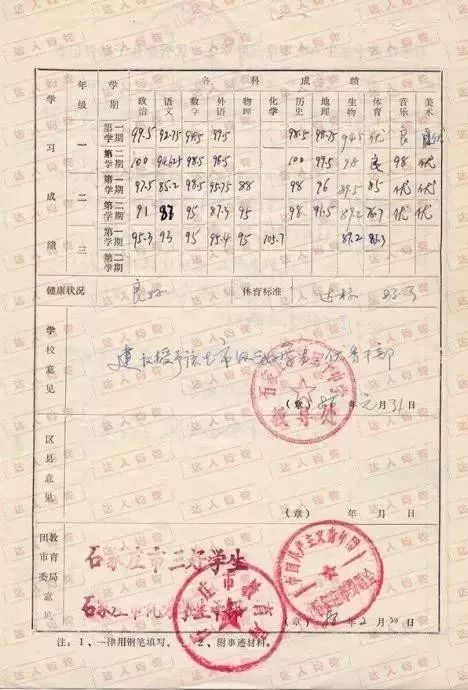 学习成绩
年级
学期
各科成绩
政治 语文 数学 外语 物理 化学 历史 地理 生物 体育 音乐 美术
一
第一学期 99.5 92.75 99.5 98.5 98.75 94.5 优 良
第二学期 100 94.625 98.5 96.5 100 99.5 98 良 98 优
二
第一学期 97.5 85.2 98.5 95.75 88 98 96 89.5 85 优 优
第二学期 91 87 95 87.3 95 98 91.5 89.2 76.7 优 优
三
第一学期 95.3 93 95 95.4 95 103.7 87.2 87.3
第二学期
健康状况 良好 体育标准 达标
学校意见
建议授予该生市级三好学生 优秀干部
(章) 年元月31日
区县意见
(章) 年 月 日
团市委教育局意见
石家庄市三好学生
石家庄市优秀学生干部
石家庄市教育局
中国共产主义青年团
年2月20日
注：1、一律用钢笔填写。 2、附事迹材料。
达人钩锐